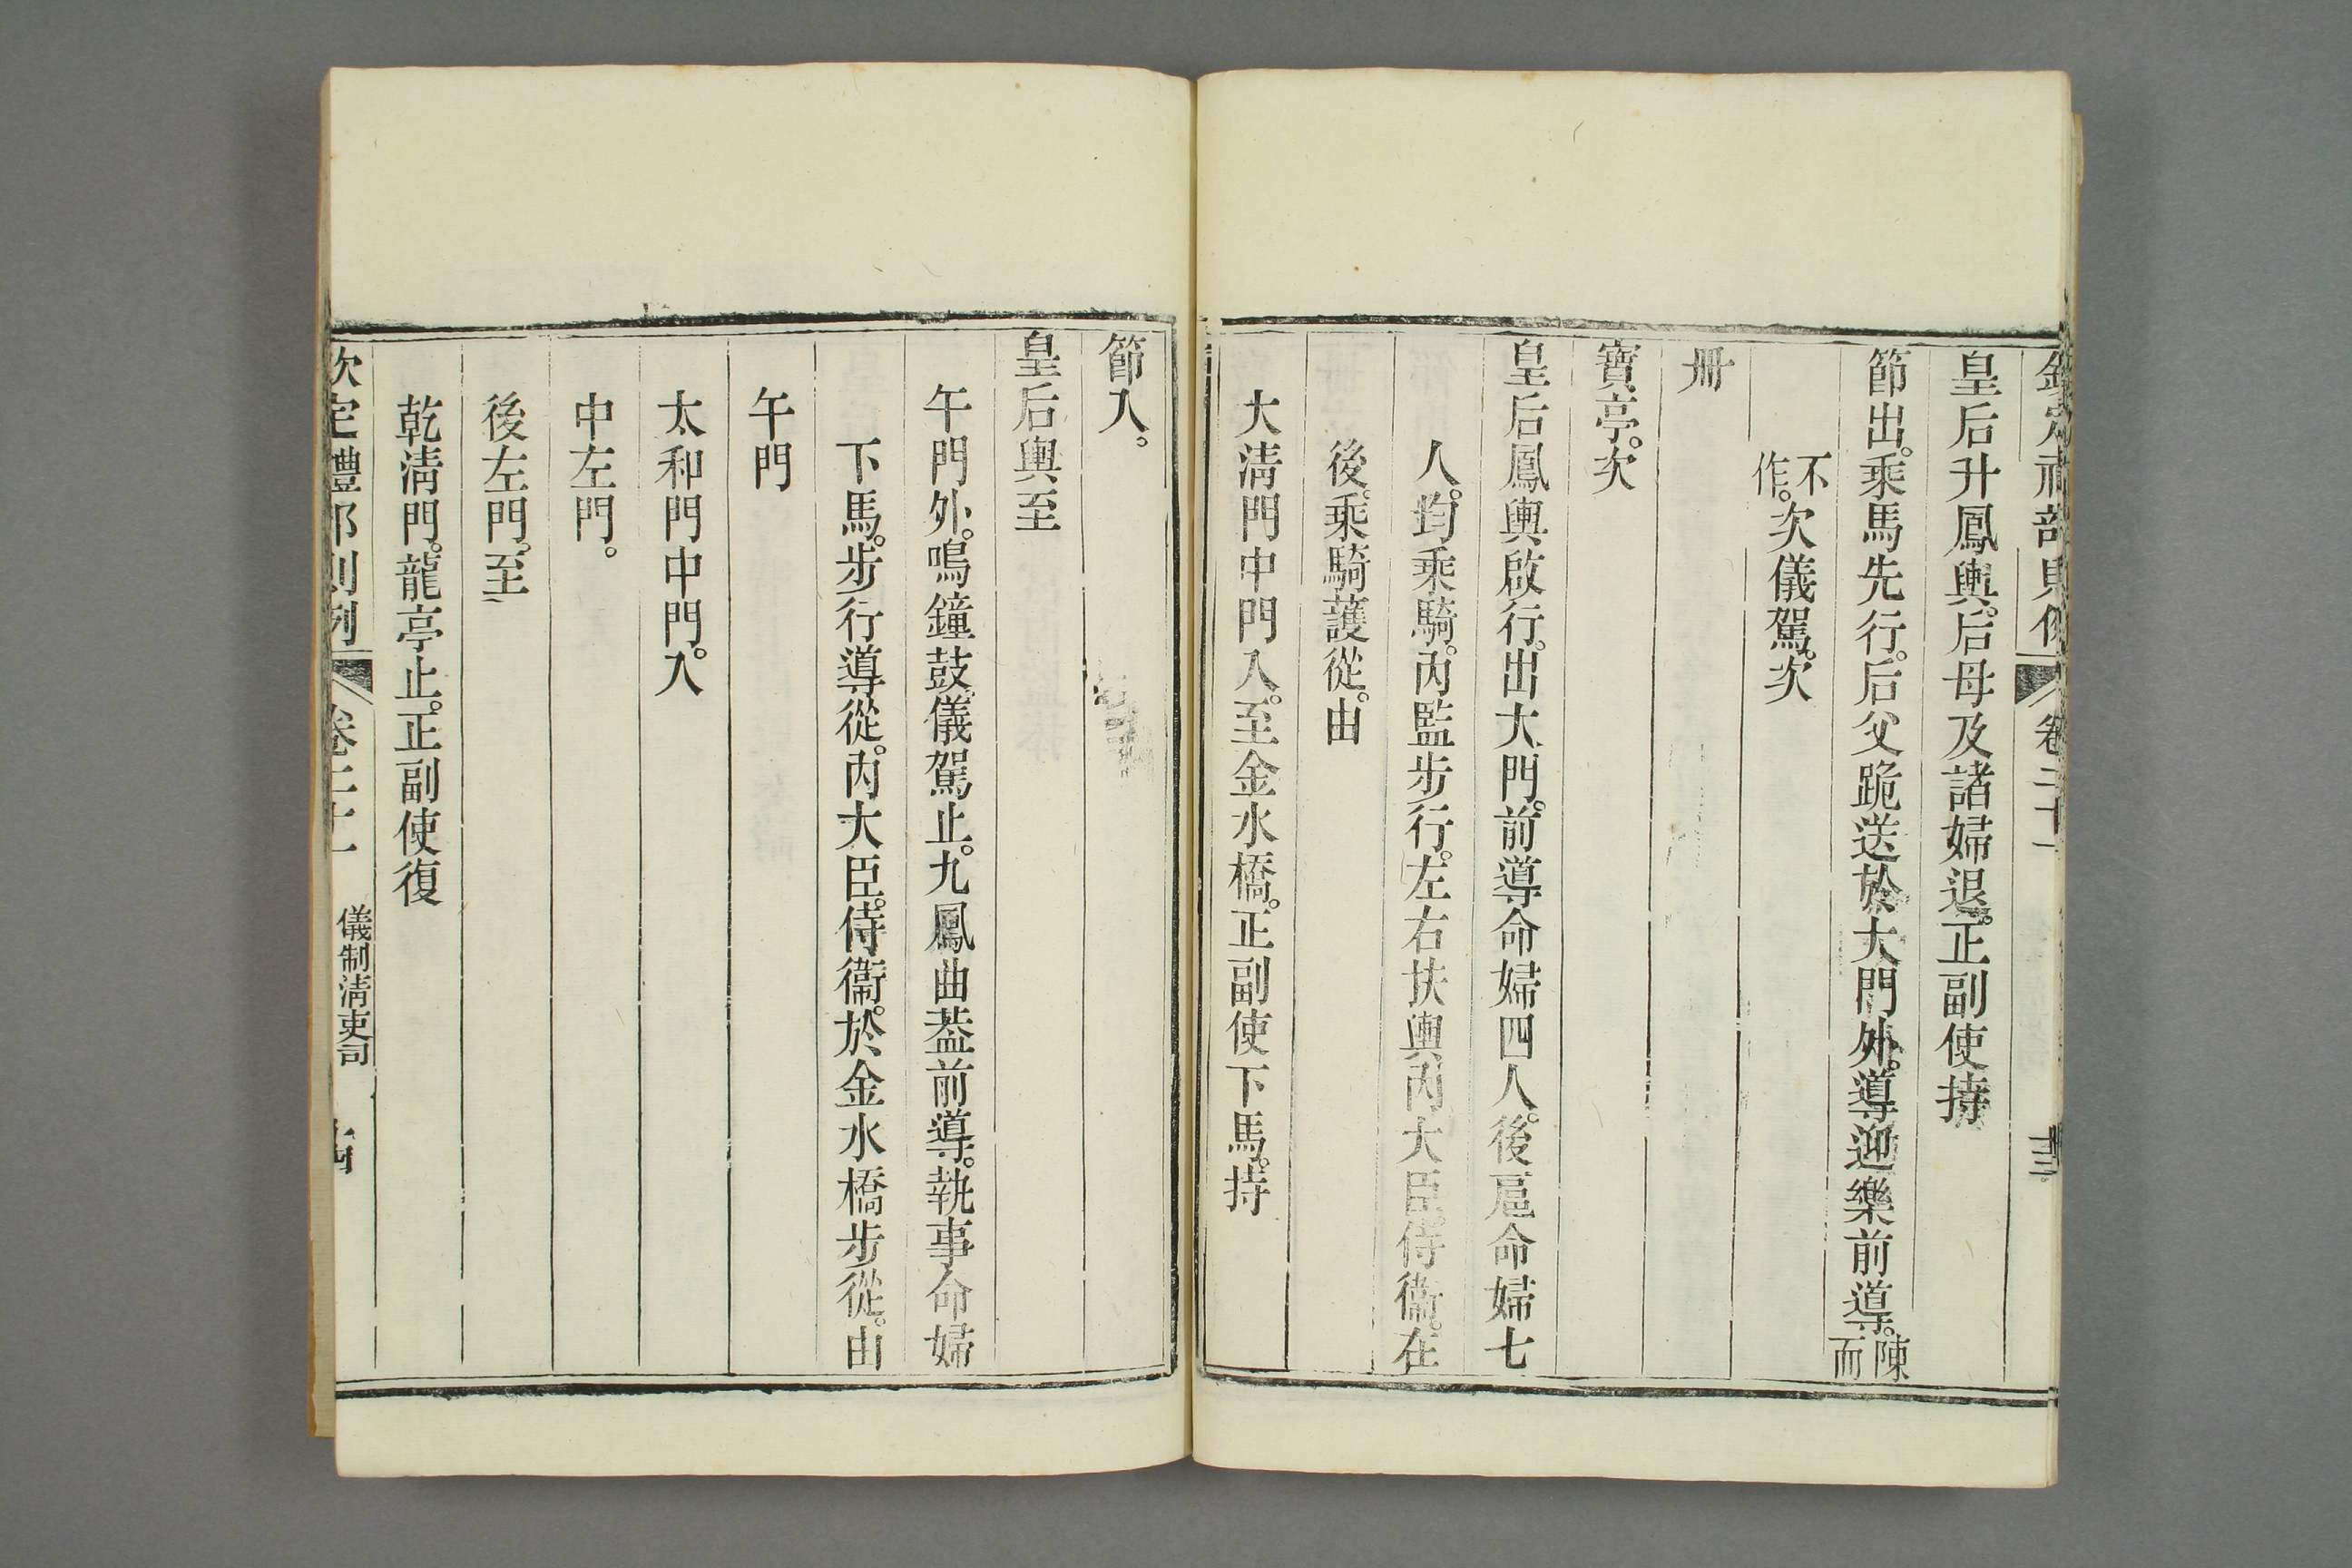 皇后升鳳輿。后母及諸婦退。正副使持
節出。乘馬先行。后父跪送於大門外。導迎樂前導。陳而
不作。次儀駕。次
冊
寶亭。次
皇后鳳輿啟行。出大門。前導命婦四人。後扈命婦七
人。均乘騎。內監步行。左右扶輿內大臣。侍衞。在
後。乘騎護從。由
大淸門中門入。至金水橋。正副使下馬。持
節入。
皇后輿至
午門外。鳴鐘鼓。儀駕止。九鳳曲葢前導。執事命婦
下馬。步行導從。內大臣。侍衞。於金水橋步從。由
午門
太和門中門。入
中左門。
後左門。至
乾淸門。龍亭止。正副使復
欽定禮部則例
儀制淸吏司